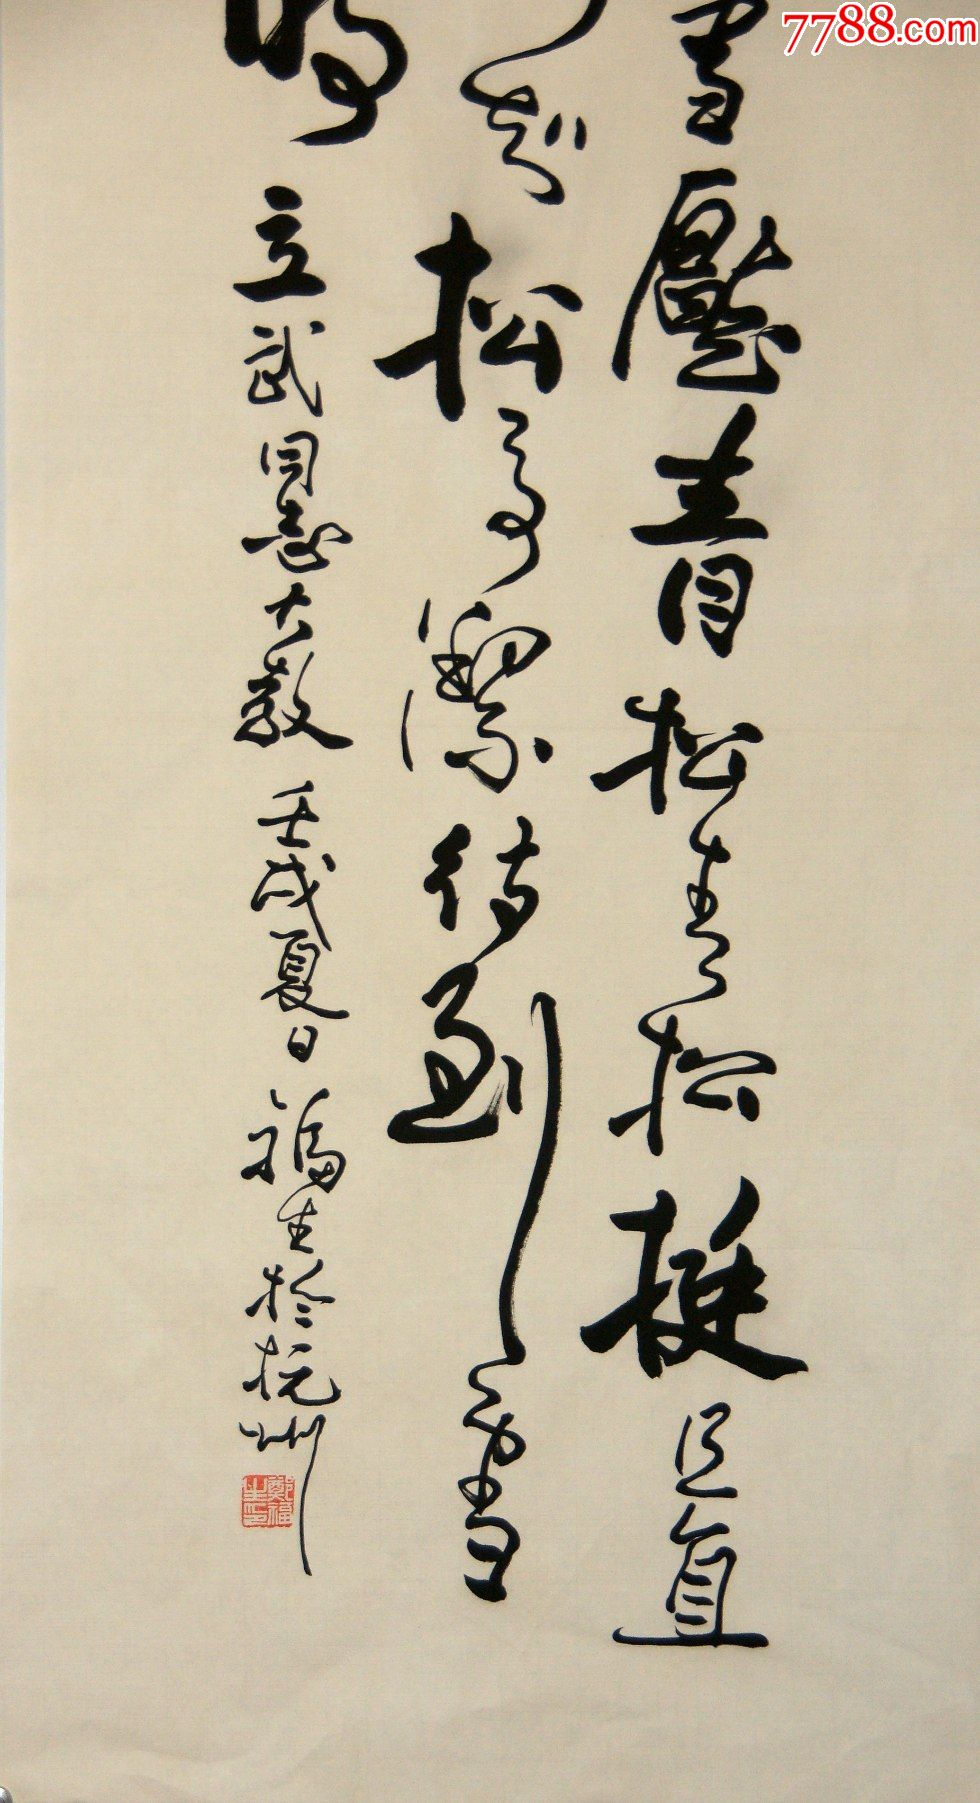 7788.com
雪壓青松青松挺且直
知松高潔待到雪
時
立武同志大教 壬戌夏日 福生於杭州
鄭福生印